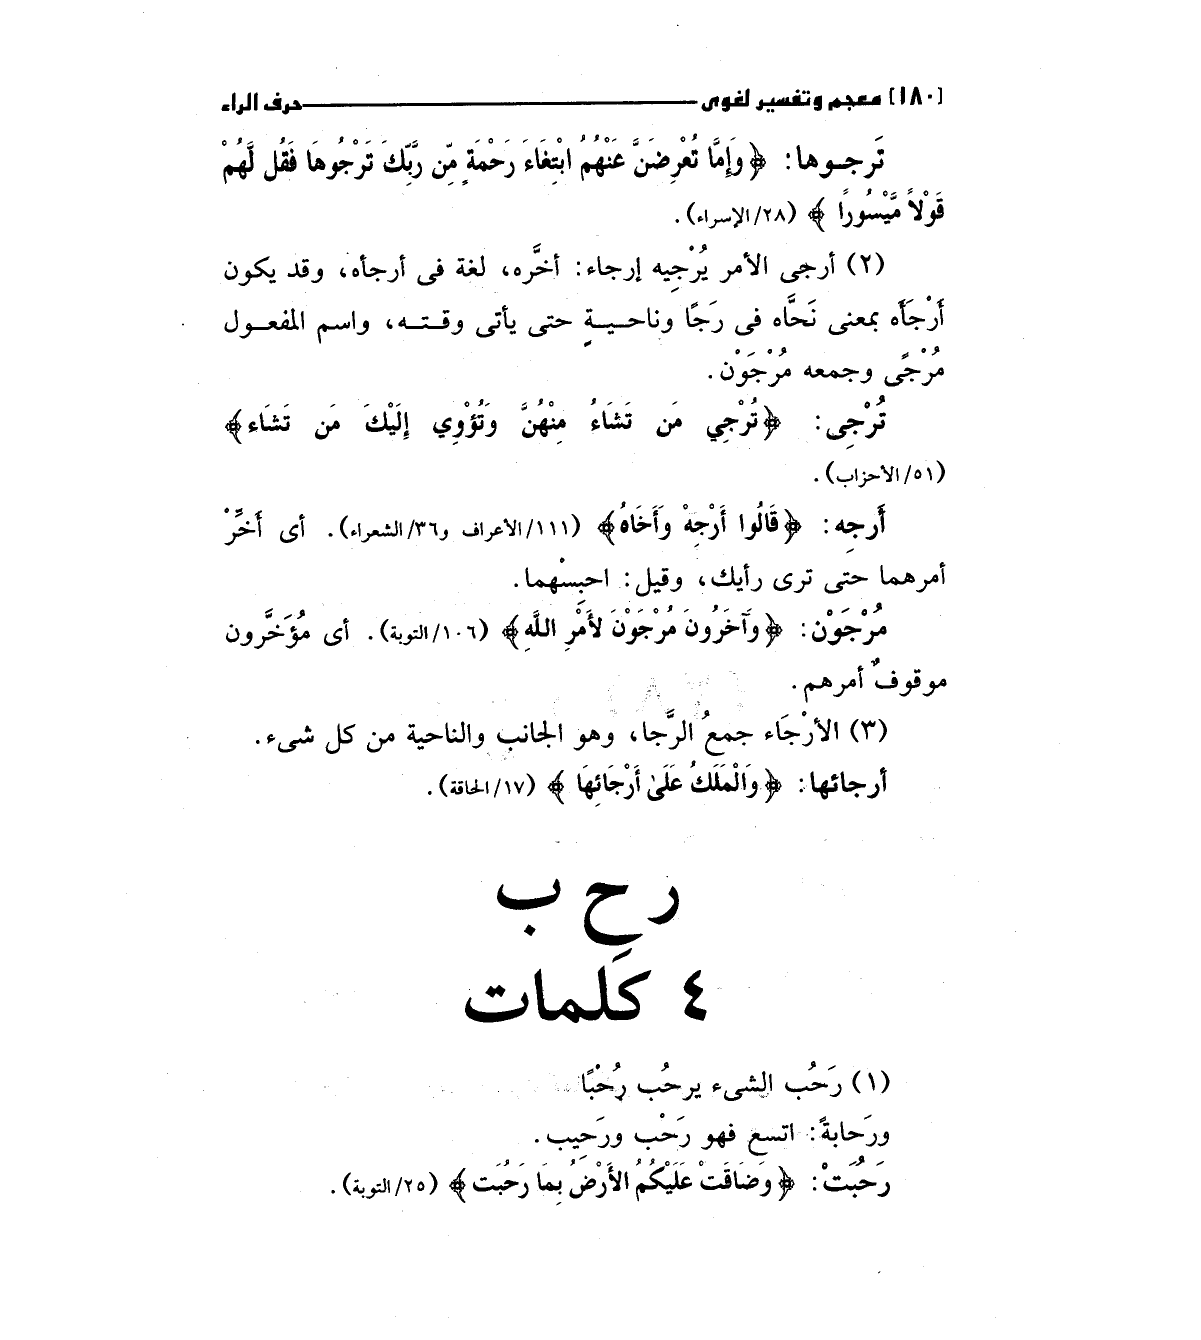 [١٨٠] معجم وتفسير لغوى ــــــ حرف الراء
تَرجـوها: ﴿وَإِمَّا تُعْرِضَنَّ عَنْهُمُ ابْتِغَاءَ رَحْمَةٍ مِّن رَّبِّكَ تَرْجُوهَا فَقُل لَّهُمْ
قَوْلاً مَّيْسُورًا ﴾ (٢٨/الإسراء).
(٢) أرجى الأمر يُرْجِيه إرجاء: أخَّره، لغة فى أرجأه، وقد يكون
أَرْجَأَه بمعنى نَحَّاه فى رَجًا وناحـيـةٍ حتى يأتى وقـتـه، واسم المفعـول
مُرْجًى وجمعه مُرْجَوْن.
تُرْجِى: ﴿تُرْجِي مَن تَشَاءُ مِنْهُنَّ وَتُؤْوِي إِلَيْكَ مَن تَشَاء﴾
(٥١/الأحزاب).
أَرجِه: ﴿قَالُوا أَرْجِهْ وَأَخَاهُ﴾ (١١١/الأعراف و٣٦/الشعراء). أى أَخِّرْ
أمرهما حتى ترى رأيك، وقيل: احبِسْهما.
مُرْجَوْن: ﴿وَآخَرُونَ مُرْجَوْنَ لأَمْرِ اللَّهِ﴾ (١٠٦/التوبة). أى مُؤَخَّرون
موقوفٌ أمرهم.
(٣) الأرْجَاء جمعُ الرَّجا، وهو الجانب والناحية من كل شىء.
أرجائها: ﴿وَالْمَلَكُ عَلَىٰ أَرْجَائِهَا ﴾ (١٧/الحاقة).
ر ح ب
٤ كَلِمات
(١) رَحُب الشىء يرحُب رُحْبًا
ورَحابةً: اتسع فهو رَحْب ورَحِيب.
رَحُبَتْ: ﴿وَضَاقَتْ عَلَيْكُمُ الأَرْضُ بِمَا رَحُبَت﴾ (٢٥/التوبة).